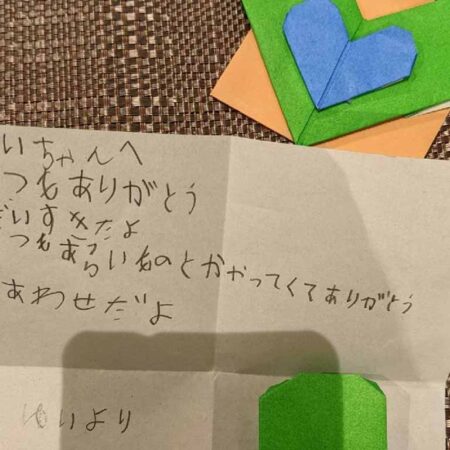 いちゃんへ
つもありがとう
いすきだよ
つもあらいものとかやってくてありがとう
あわせだよ
ゆいより